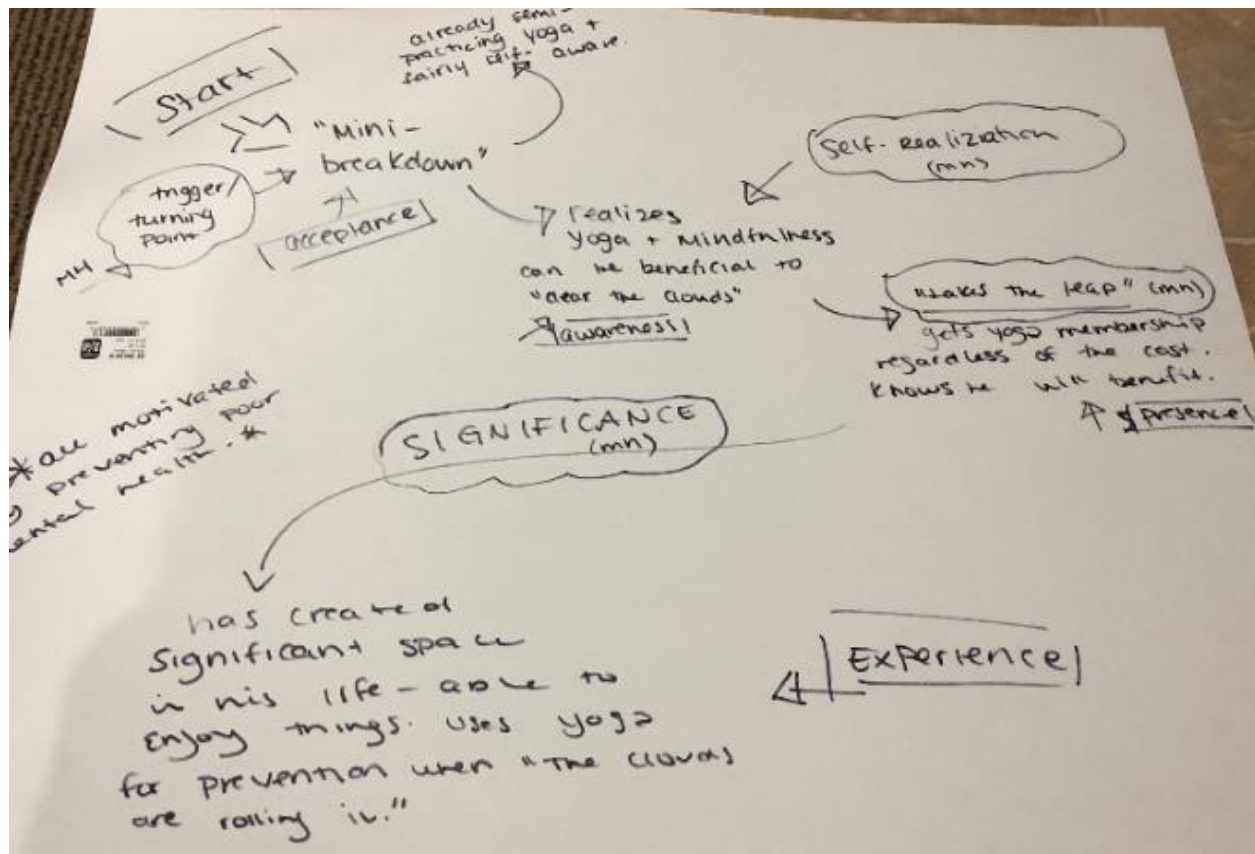 already semi-
practicing yoga +
fairly self-aware.
Start
"Mini-
breakdown"
trigger/
turning
point
acceptance
MH
Self-Realiziation
(mn)
realizes
yoga + Mindfulness
can be beneficial to
"clear the clouds"
awareness
"takes the leap" (mn)
gets yoga membership
regardless of the cost.
Knows he will benefit.
presence
* all motivated
preventing poor
ental health. *
SIGNIFICANCE
(mn)
has created
significant space
in his life - able to
enjoy things. uses yoga
for prevention when "the clouds
are rolling in."
Experience